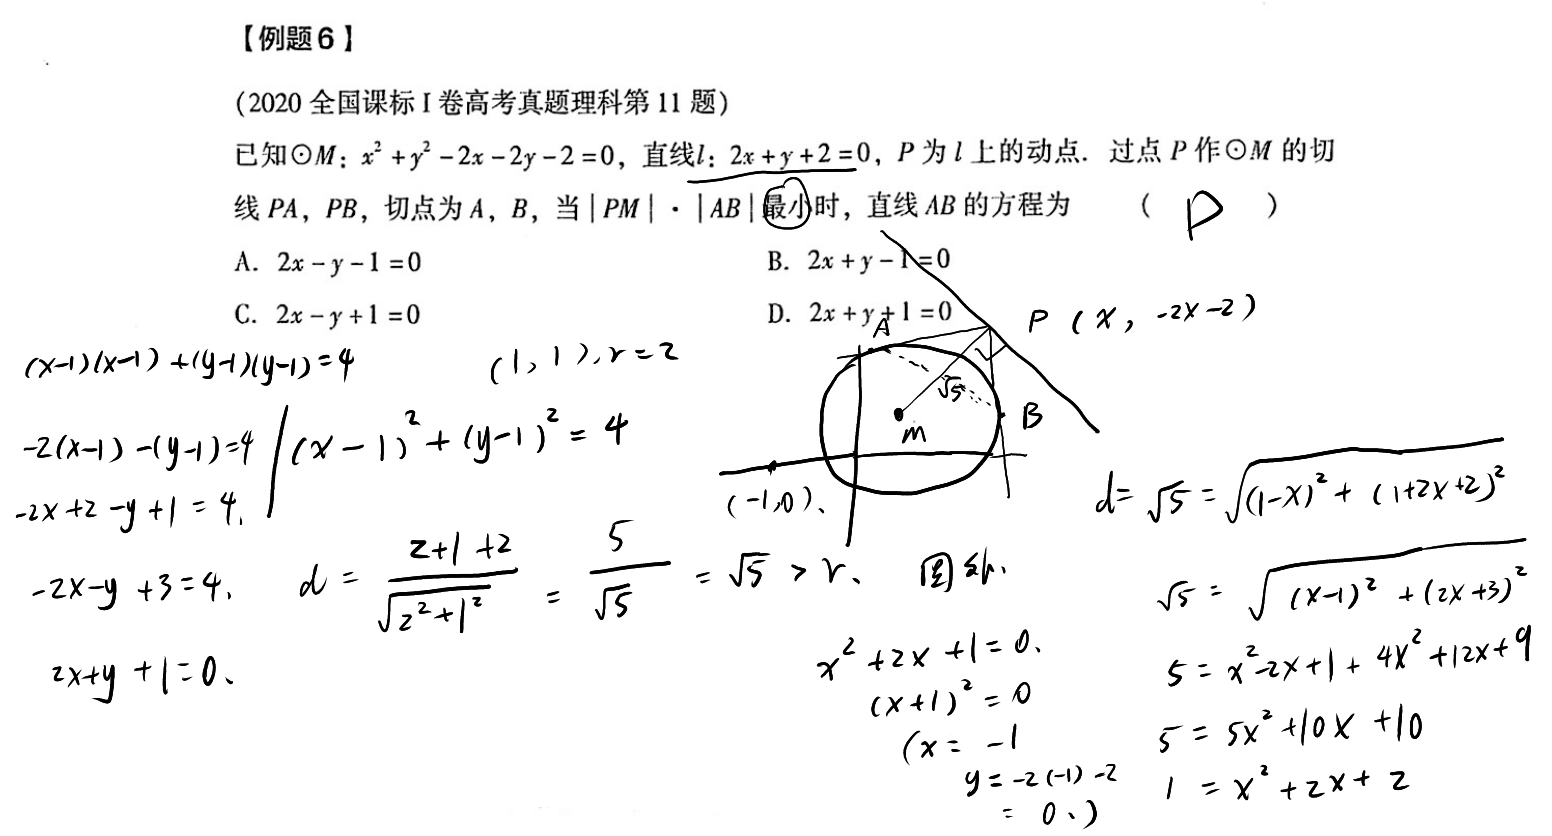 【例题6】
(2020 全国课标 I 卷高考真题理科第 11 题)
已知⊙M: x² + y² - 2x - 2y - 2 = 0, 直线l: 2x + y + 2 = 0, P 为 l 上的动点. 过点 P 作⊙M 的切
线 PA, PB, 切点为 A, B, 当 |PM| · |AB| 最小时, 直线 AB 的方程为 ( D )
A. 2x - y - 1 = 0
B. 2x + y - 1 = 0
C. 2x - y + 1 = 0
D. 2x + y + 1 = 0
A
P (x, -2x-2)
√5
M
B
(-1,0)、
(x-1)(x-1) + (y-1)(y-1) = 4
(1, 1), r = 2
-2(x-1) - (y-1) = 4
(x-1)² + (y-1)² = 4
-2x+2 -y+1 = 4.
-2x-y+3 = 4.
2x+y+1=0、
d = (2+1+2)/√(2²+1²) = 5/√5 = √5 > r、 圆外.
d = √5 = √((1-x)² + (1+2x+2)²)
√5 = √((x-1)² + (2x+3)²)
5 = x²-2x+1+4x²+12x+9
5 = 5x²+10x+10
1 = x²+2x+2
x²+2x+1=0、
(x+1)² = 0
(x = -1
y = -2(-1)-2
= 0、)